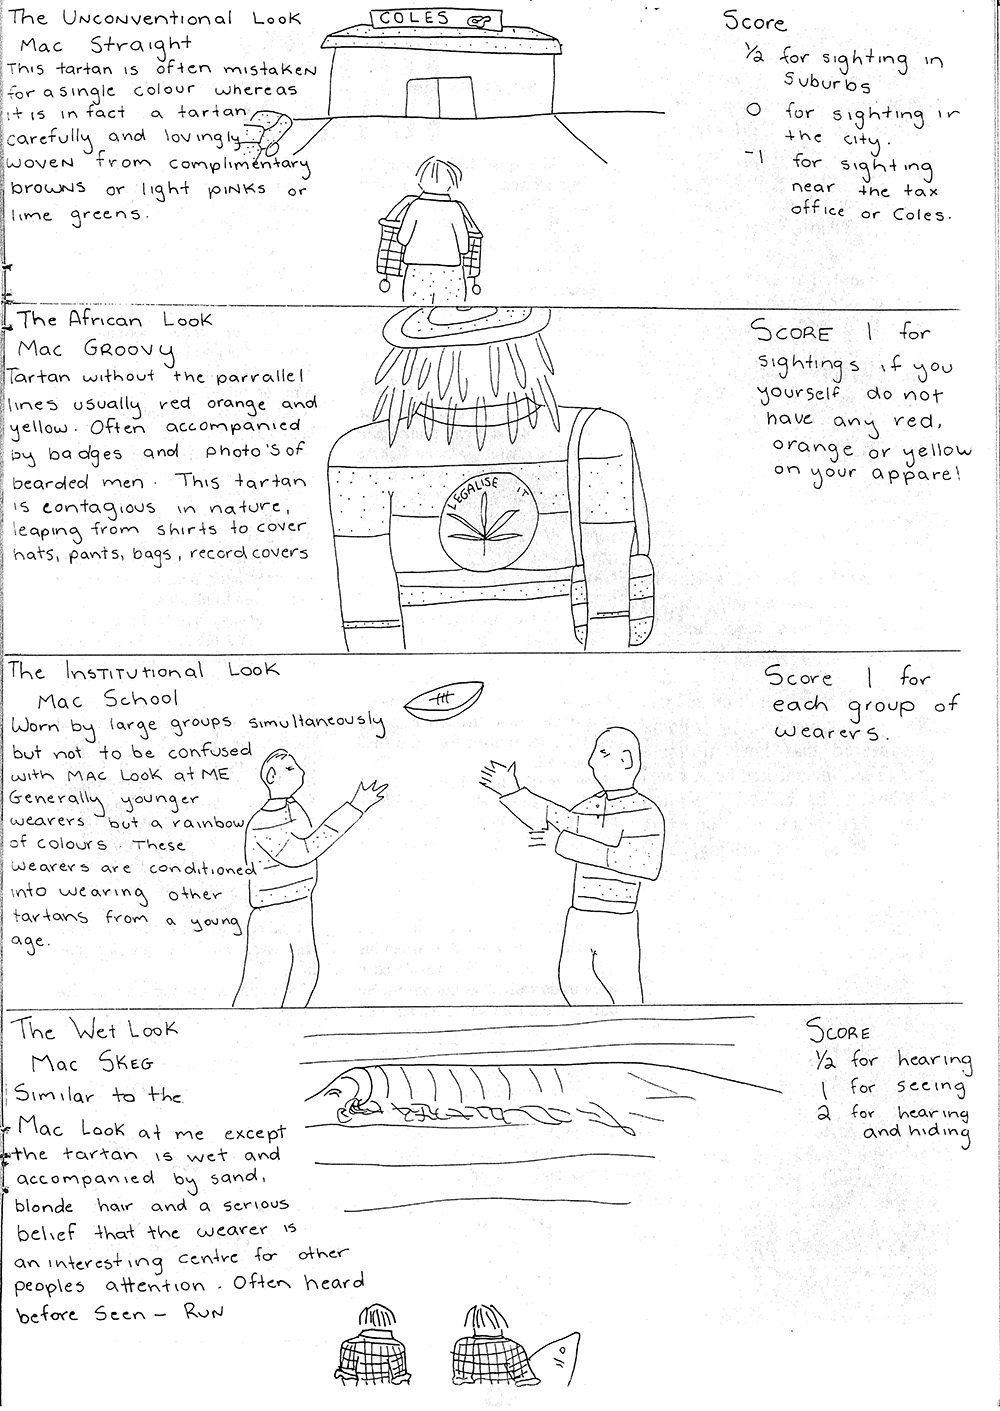 The UNCONVENTIONAL LOOK
Mac Straight
This tartan is often mistaken
for a single colour whereas
it is in fact a tartan
carefully and lovingly
woven from complimentary
browns or light pinks or
lime greens.
COLES
Score
1/2 for sighting in
Suburbs
0 for sighting in
the city.
-1 for sighting
near the tax
office or Coles.
The African Look
Mac GROOVY
Tartan without the parrallel
lines usually red orange and
yellow. Often accompanied
by badges and photo's of
bearded men. This tartan
is contagious in nature,
leaping from shirts to cover
hats, pants, bags, record covers
LEGALISE IT
SCORE 1 for
sightings if you
yourself do not
have any red,
orange or yellow
on your apparel
The INSTITUTIONAL LOOK
Mac School
Worn by large groups simultaneously
but not to be confused
with MAC LOOK at ME
Generally younger
wearers but a rainbow
of colours. These
wearers are conditioned
into wearing other
tartans from a young
age.
Score 1 for
each group of
wearers.
The Wet Look
Mac SKEG
Similar to the
Mac Look at me except
the tartan is wet and
accompanied by sand,
blonde hair and a serious
belief that the wearer is
an interesting centre for other
peoples attention. Often heard
before Seen - RUN
SCORE
1/2 for hearing
1 for seeing
2 for hearing
and hiding